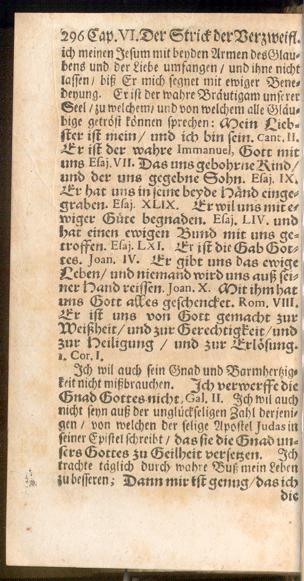 296 Cap. VI. Der Strick der Verzweifl.
ich meinen Jesum mit beyden Armen des Glau-
bens und der Liebe umfangen / und ihne nicht
lassen / biß Er mich segnet mit ewiger Bene-
deyung. Er ist der wahre Bräutigam unserer
Seel / zu welchem / und von welchem alle Gläu-
bige getröst können sprechen: Mein Lieb-
ster ist mein / und ich bin sein. Cant. II.
Er ist der wahre Immanuel, Gott mit
uns Esaj. VII. Das uns gebohrne Kind /
und der uns gegebne Sohn. Esaj. IX.
Er hat uns in seine beyde Händ einge-
graben. Esaj. XLIX. Er wil uns mit e-
wiger Güte begnaden. Esaj. LIV. und
hat einen ewigen Bund mit uns ge-
troffen. Esaj. LXI. Er ist die Gab Got-
tes. Joan. IV. Er gibt uns das ewige
Leben / und niemand wird uns auß sei-
ner Hand reissen. Joan. X. Mit ihm hat
uns Gott alles geschencket. Rom. VIII.
Er ist uns von Gott gemacht zur
Weißheit / und zur Gerechtigkeit / und
zur Heiligung / und zur Erlösung.
1. Cor. I.
Ich wil auch sein Gnad und Barmhertzig-
keit nicht mißbrauchen. Ich verwerffe die
Gnad Gottes nicht. Gal. II. Ich wil auch
nicht seyn auß der unglückseligen Zahl derjeni-
gen / von welchen der selige Apostel Judas in
seiner Epistel schreibt / das sie die Gnad un-
sers Gottes zu Geilheit versetzen. Ich
trachte täglich durch wahre Buß mein Leben
zu besseren; Dann mir ist genug / das ich
die